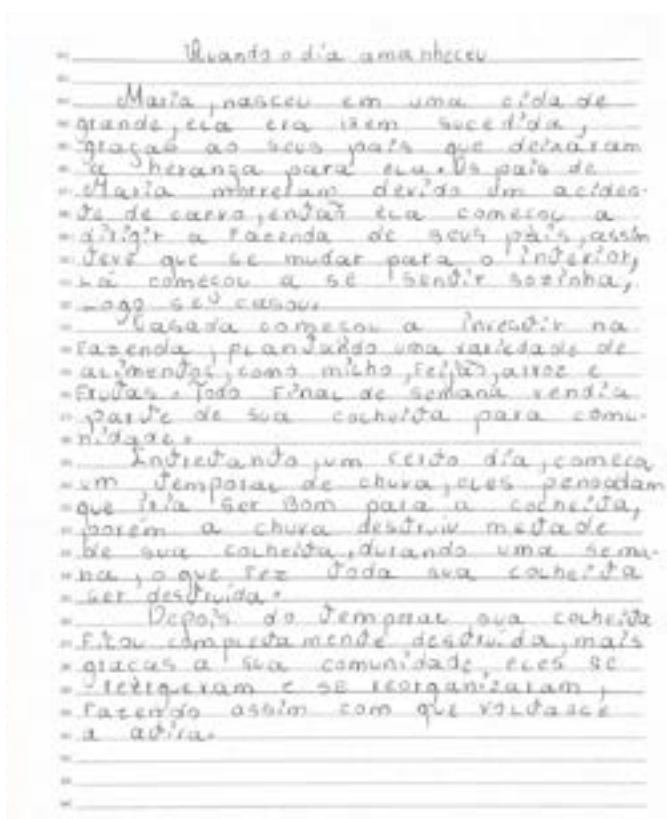 Quando o dia amanheceu
Maria, nasceu em uma cidade
grande, ela era bem sucedida,
graças ao seus pais que deixaram
a herança para ela. Os pais de
Maria morreram devido um aciden-
te de carro, então ela começou a
dirigir a fazenda de seus pais, assim
teve que se mudar para o interior,
Lá começou a se sentir sozinha,
Logo se casou.
Casada começou a investir na
fazenda, plantando uma variedade de
alimentos, como milho, feijão, arroz e
frutas. Todo final de semana vendia
parte de sua colheita para comu-
nidade.
Entretanto, um certo dia, começa
um temporal de chuva, eles pensadam
que iria ser bom para a colheita,
porém a chuva destruiu metade
de sua colheita, durando uma sema-
na, o que fez toda sua colheita
ser destruída.
Depois do temporal, sua colheita
ficou completamente destruída, mais
graças a sua comunidade, eles se
reergueram e se reorganizaram,
fazendo assim com que voltasse
a ativa.